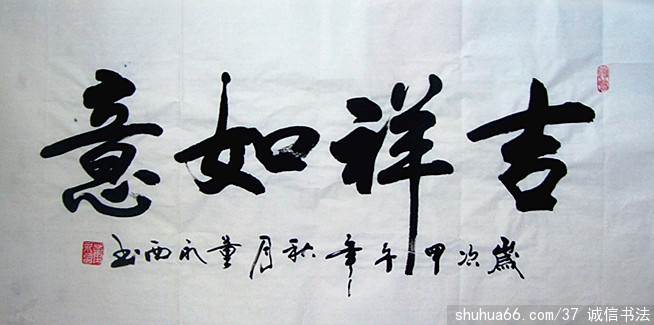 吉祥如意
歲次甲午年秋月董永西书
shuhua66.com/37 诚信书法